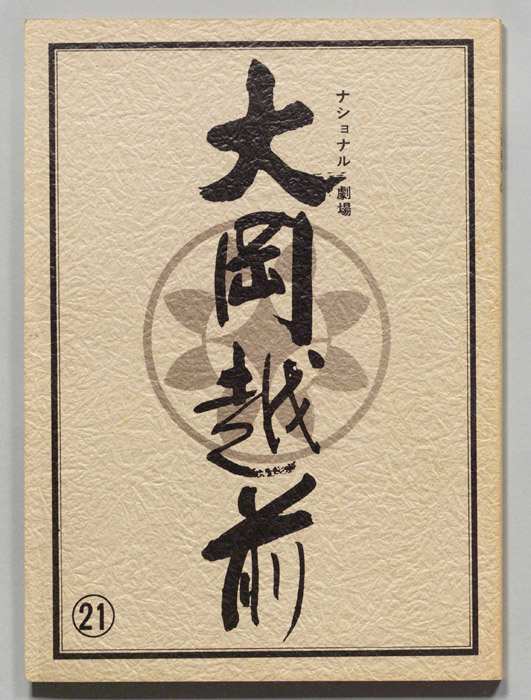 ナショナル劇場
大岡越前
21